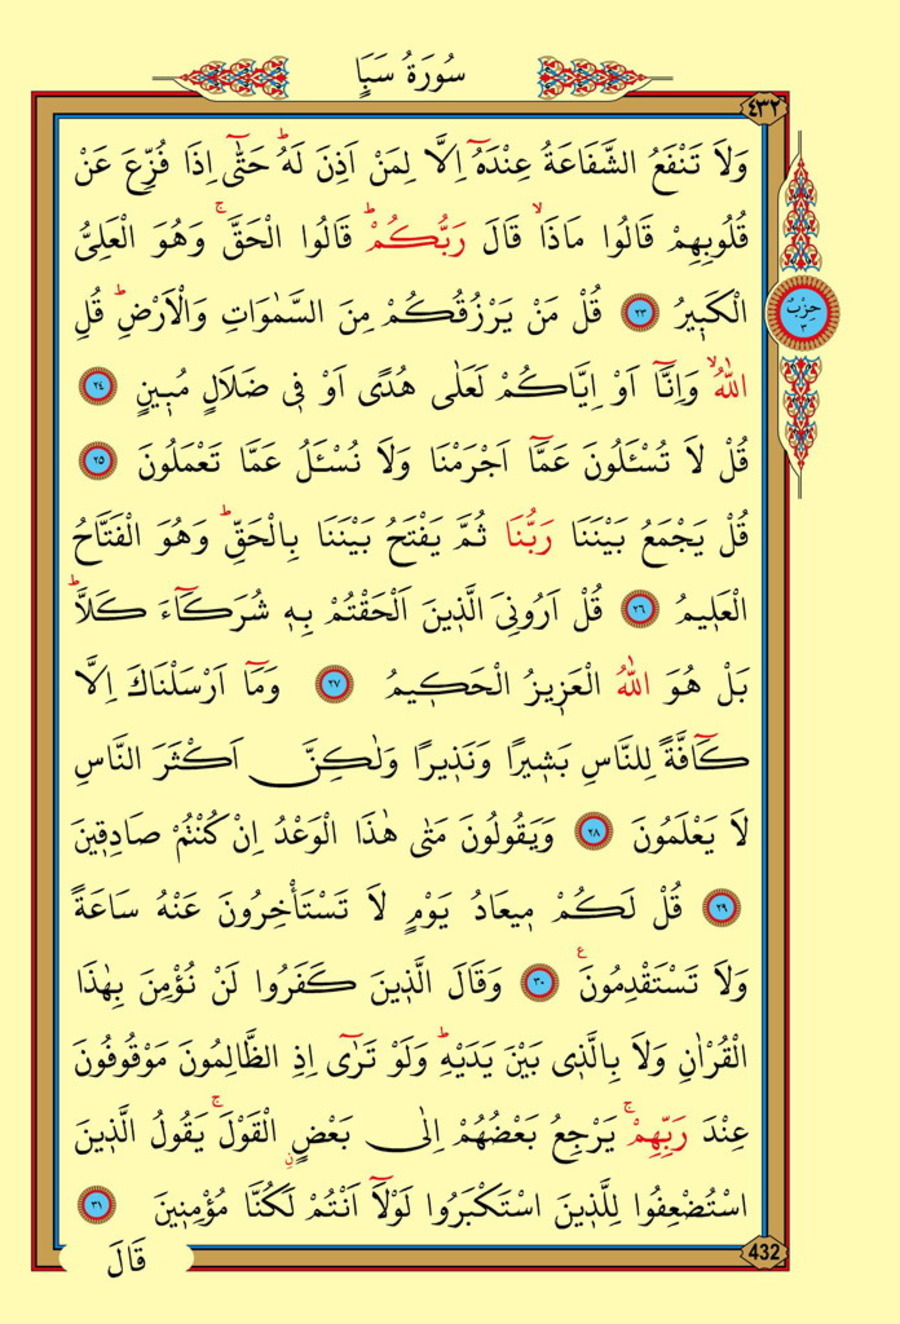 سُورَةُ سَبَأٍ
٤٣٢
وَلَا تَنْفَعُ الشَّفَاعَةُ عِنْدَهُٓ اِلَّا لِمَنْ اَذِنَ لَهُۜ حَتّٰٓى اِذَا فُزِّعَ عَنْ
قُلُوبِهِمْ قَالُوا مَاذَاۙ قَالَ رَبُّكُمْۜ قَالُوا الْحَقَّۚ وَهُوَ الْعَلِىُّ
الْكَبٖيرُ ﴿٢٣﴾ قُلْ مَنْ يَرْزُقُكُمْ مِنَ السَّمٰوَاتِ وَالْاَرْضِۜ قُلِ
حِزْبٌ
٣
اللّٰهُۙ وَاِنَّٓا اَوْ اِيَّاكُمْ لَعَلٰى هُدًى اَوْ فٖى ضَلَالٍ مُبٖينٍ ﴿٢٤﴾
قُلْ لَا تُسْـَٔلُونَ عَمَّٓا اَجْرَمْنَا وَلَا نُسْـَٔلُ عَمَّا تَعْمَلُونَ ﴿٢٥﴾
قُلْ يَجْمَعُ بَيْنَنَا رَبُّنَا ثُمَّ يَفْتَحُ بَيْنَنَا بِالْحَقِّۜ وَهُوَ الْفَتَّاحُ
الْعَلٖيمُ ﴿٢٦﴾ قُلْ اَرُونِىَ الَّذٖينَ اَلْحَقْتُمْ بِهٖ شُرَكَٓاءَ كَلَّاۜ
بَلْ هُوَ اللّٰهُ الْعَزٖيزُ الْحَكٖيمُ ﴿٢٧﴾ وَمَٓا اَرْسَلْنَاكَ اِلَّا
كَٓافَّةً لِلنَّاسِ بَشٖيرًا وَنَذٖيرًا وَلٰكِنَّ اَكْثَرَ النَّاسِ
لَا يَعْلَمُونَ ﴿٢٨﴾ وَيَقُولُونَ مَتٰى هٰذَا الْوَعْدُ اِنْ كُنْتُمْ صَادِقٖينَ
﴿٢٩﴾ قُلْ لَكُمْ مٖيعَادُ يَوْمٍ لَا تَسْتَأْخِرُونَ عَنْهُ سَاعَةً
وَلَا تَسْتَقْدِمُونَ ع ﴿٣٠﴾ وَقَالَ الَّذٖينَ كَفَرُوا لَنْ نُؤْمِنَ بِهٰذَا
الْقُرْاٰنِ وَلَا بِالَّذٖى بَيْنَ يَدَيْهِۜ وَلَوْ تَرٰٓى اِذِ الظَّالِمُونَ مَوْقُوفُونَ
عِنْدَ رَبِّهِمْۚ يَرْجِعُ بَعْضُهُمْ اِلٰى بَعْضٍ ن الْقَوْلَۚ يَقُولُ الَّذٖينَ
اسْتُضْعِفُوا لِلَّذٖينَ اسْتَكْبَرُوا لَوْلَٓا اَنْتُمْ لَكُنَّا مُؤْمِنٖينَ ﴿٣١﴾
432
قَالَ